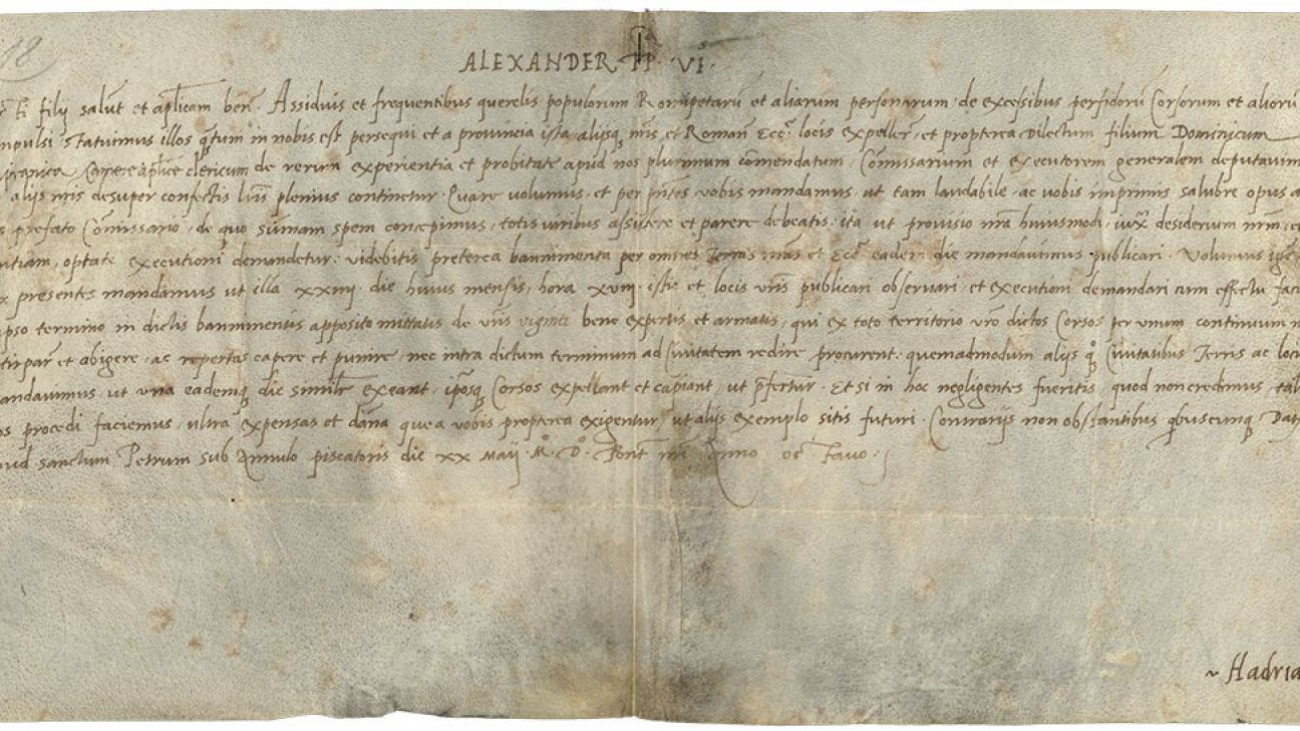 18
ALEXANDER PP VI
filij salut et aplicam ben. Assiduis et frequentibus querelis populorum Romipetarū et aliarum personarum, de excessibus perfidorū Corsorum et aliorū
impulsi statuimus illos qtum in nobis est persequi et a provincia ista, alijsq nris et Roman Ecc locis expeller, et propterea Dilectum filium Dominicum
Camere aplice clericum de rerum experientia et probitate apud nos plurimum comendatum, Comissarium et executorem generalem deputavim
alijs nris desuper confectis lris plenius continetur. Quare volumus, et per pntes vobis mandamus, ut tam laudabile ac vobis imprimis salubre opus
prefato Comissario, de quo sumam spem concepimus, totis viribus assistere et parere debeatis, ita ut provisio nra huiusmodi, iux desiderium nrm, et
optate executioni demandetur. videbitis preterea bannimenta per omnes Terras nras et Ecc eadem die mandavimus publicari. Volumus
presentes mandamus ut illa xxiiii die huius mensis, hora xviii istic et locis vris publicari observari, et executioni demandari cum effectu
ipso termino in dictis bannimentis apposito mittatis de vris viginti bene expertis et armatis, qui ex toto territorio vro dictos Corsos per unum continuum
et abigere, ac repertos capere et punire, nec intra dictum terminum ad Civitatem redire procurent. quemadmodum alijs q Civitatibus Terris ac
mandavimus, ut una eademq die similr exeant, iposq Corsos expellant et capiant, ut pfertur. Et si in hoc negligentes fueritis, quod non credimus,
procedi faciemus, ultra expensas et dana que a vobis propterea exigentur, ut alijs exemplo sitis futuri. Contrarijs non obstantibus qbuscunq Dat
sanctum Petrum sub Annulo piscatoris die xx Maij M. D. Pont nri Anno octavo.
Hadria